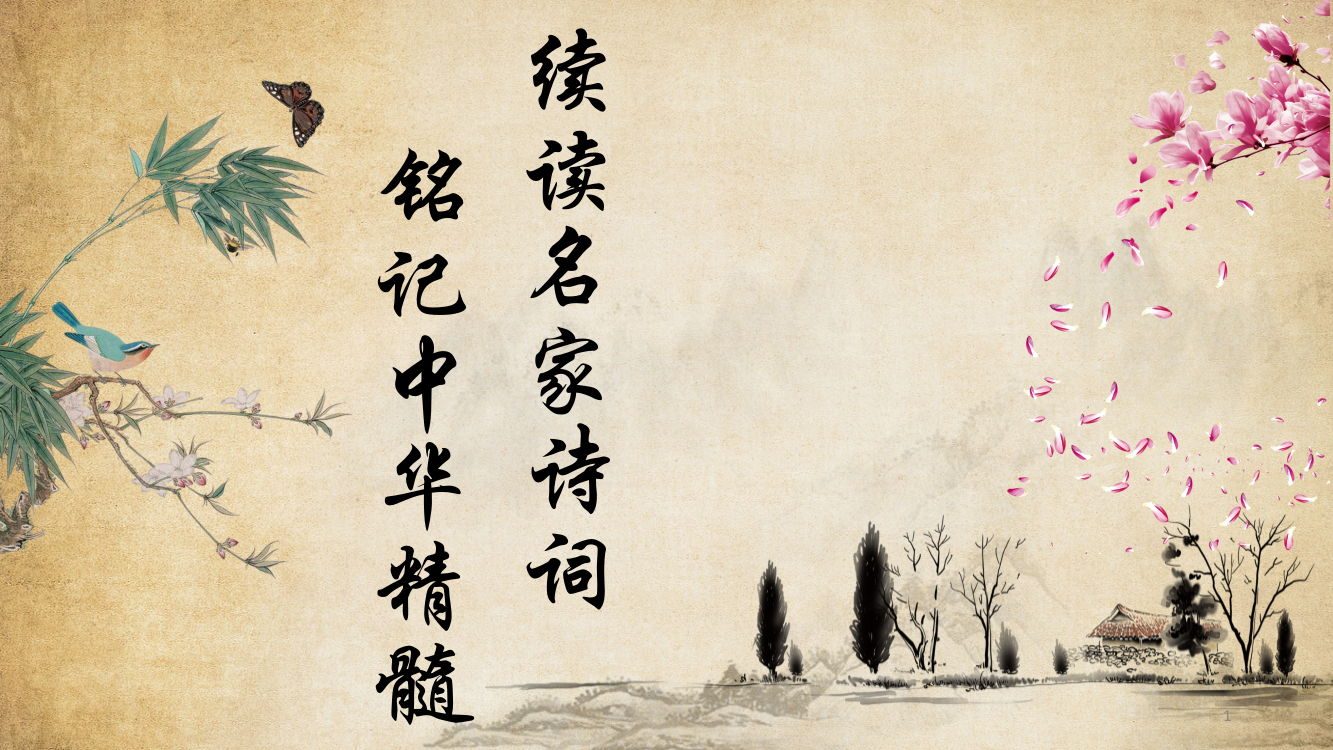 续读名家诗词
铭记中华精髓
1